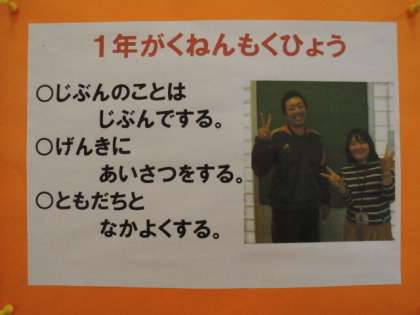 1年がくねんもくひょう
○じぶんのことは
じぶんでする。
○げんきに
あいさつをする。
○ともだちと
なかよくする。